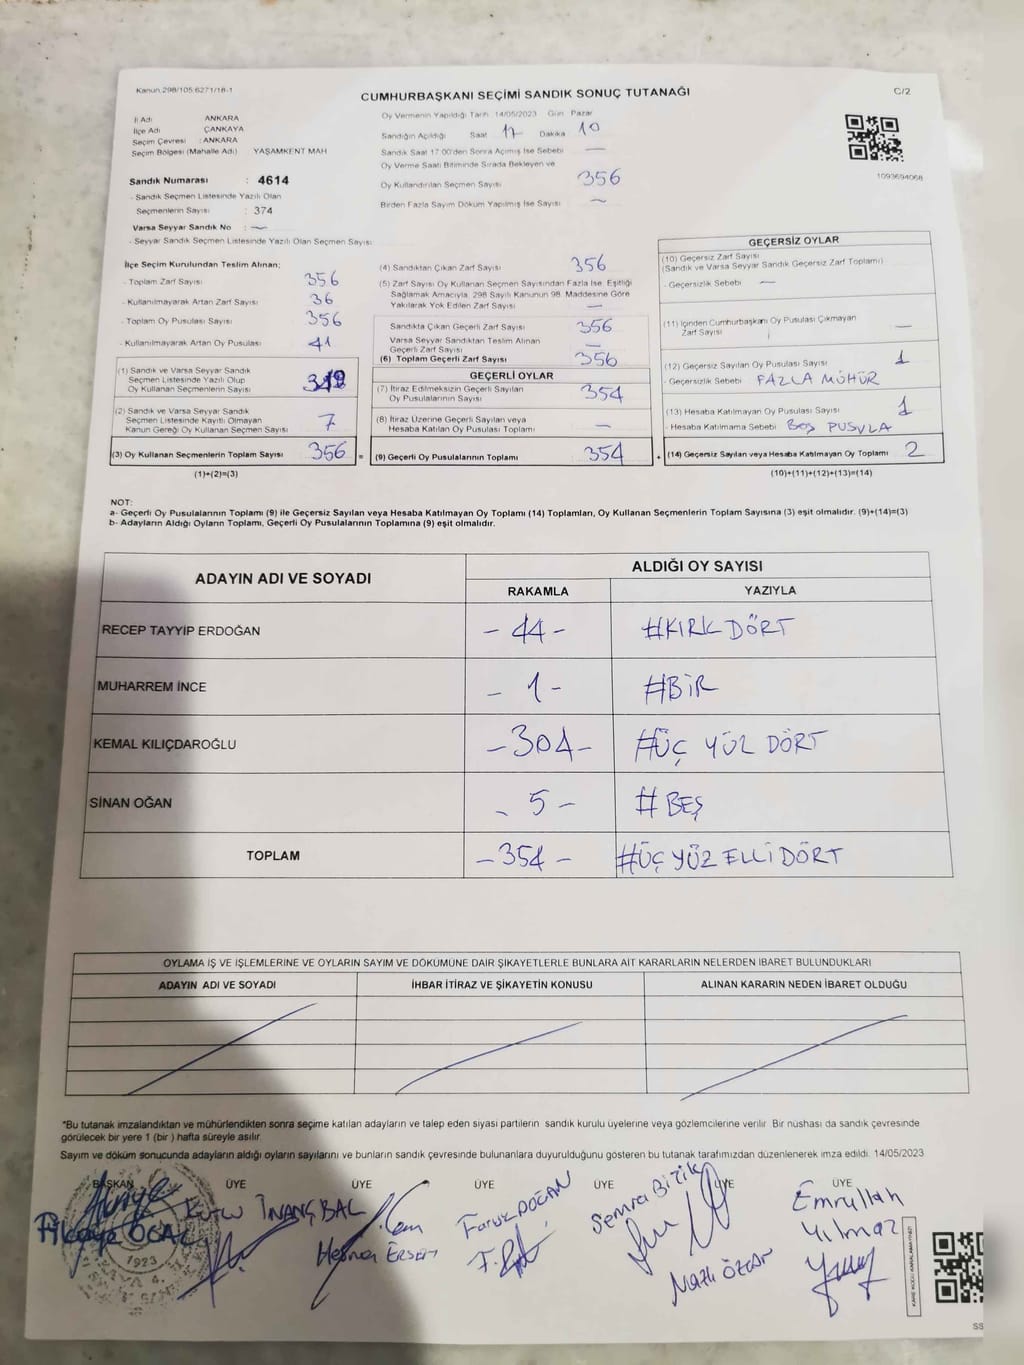 Kanun 298/105 6271/18-1
CUMHURBAŞKANI SEÇİMİ SANDIK SONUÇ TUTANAĞI
C/2
İl Adı ANKARA
İlçe Adı ÇANKAYA
Seçim Çevresi : ANKARA
Seçim Bölgesi (Mahalle Adı) YAŞAMKENT MAH
Sandık Numarası : 4614
- Sandık Seçmen Listesinde Yazılı Olan
Seçmenlerin Sayısı : 374
Varsa Seyyar Sandık No : —
- Seyyar Sandık Seçmen Listesinde Yazılı Olan Seçmen Sayısı:
Oy Vermenin Yapıldığı Tarih 14/05/2023 Gün Pazar
Sandığın Açıldığı Saat 17 Dakika 10
Sandık Saat 17:00'den Sonra Açılmış İse Sebebi —
Oy Verme Saati Bitiminde Sırada Bekleyen ve
Oy Kullandırılan Seçmen Sayısı 356
Birden Fazla Sayım Döküm Yapılmış İse Sayısı —
1093694068
İlçe Seçim Kurulundan Teslim Alınan;
- Toplam Zarf Sayısı 356
- Kullanılmayarak Artan Zarf Sayısı 36
- Toplam Oy Pusulası Sayısı 356
- Kullanılmayarak Artan Oy Pusulası 41
(1) Sandık ve Varsa Seyyar Sandık
Seçmen Listesinde Yazılı Olup
Oy Kullanan Seçmenlerin Sayısı
(2) Sandık ve Varsa Seyyar Sandık
Seçmen Listesinde Kayıtlı Olmayan
Kanun Gereği Oy Kullanan Seçmen Sayısı 7
(3) Oy Kullanan Seçmenlerin Toplam Sayısı 356 =
(1)+(2)=(3)
(4) Sandıktan Çıkan Zarf Sayısı 356
(5) Zarf Sayısı Oy Kullanan Seçmen Sayısından Fazla İse, Eşitliği
Sağlamak Amacıyla, 298 Sayılı Kanunun 98. Maddesine Göre
Yakılarak Yok Edilen Zarf Sayısı —
Sandıkta Çıkan Geçerli Zarf Sayısı 356
Varsa Seyyar Sandıktan Teslim Alınan
Geçerli Zarf Sayısı —
(6) Toplam Geçerli Zarf Sayısı 356
GEÇERLİ OYLAR
(7) İtiraz Edilmeksizin Geçerli Sayılan
Oy Pusulalarının Sayısı 354
(8) İtiraz Üzerine Geçerli Sayılan veya
Hesaba Katılan Oy Pusulası Toplamı —
(9) Geçerli Oy Pusulalarının Toplamı 354 +
GEÇERSİZ OYLAR
(10) Geçersiz Zarf Sayısı
(Sandık ve Varsa Seyyar Sandık Geçersiz Zarf Toplamı)
- Geçersizlik Sebebi —
(11) İçinden Cumhurbaşkanı Oy Pusulası Çıkmayan
Zarf Sayısı —
(12) Geçersiz Sayılan Oy Pusulası Sayısı 1
- Geçersizlik Sebebi FAZLA MÜHÜR
(13) Hesaba Katılmayan Oy Pusulası Sayısı 1
- Hesaba Katılmama Sebebi BOŞ PUSULA
(14) Geçersiz Sayılan veya Hesaba Katılmayan Oy Toplamı 2
(10)+(11)+(12)+(13)=(14)
NOT:
a- Geçerli Oy Pusulalarının Toplamı (9) ile Geçersiz Sayılan veya Hesaba Katılmayan Oy Toplamı (14) Toplamları, Oy Kullanan Seçmenlerin Toplam Sayısına (3) eşit olmalıdır. (9)+(14)=(3)
b- Adayların Aldığı Oyların Toplamı, Geçerli Oy Pusulalarının Toplamına (9) eşit olmalıdır.
ADAYIN ADI VE SOYADI
ALDIĞI OY SAYISI
RAKAMLA YAZIYLA
RECEP TAYYİP ERDOĞAN - 44 - #KIRK DÖRT
MUHARREM İNCE - 1 - #BİR
KEMAL KILIÇDAROĞLU - 304 - #ÜÇ YÜZ DÖRT
SİNAN OĞAN - 5 - #BEŞ
TOPLAM - 354 - #ÜÇ YÜZ ELLİ DÖRT
OYLAMA İŞ VE İŞLEMLERİNE VE OYLARIN SAYIM VE DÖKÜMÜNE DAİR ŞİKAYETLERLE BUNLARA AİT KARARLARIN NELERDEN İBARET BULUNDUKLARI
ADAYIN ADI VE SOYADI İHBAR İTİRAZ VE ŞİKAYETİN KONUSU ALINAN KARARIN NEDEN İBARET OLDUĞU
*Bu tutanak imzalandıktan ve mühürlendikten sonra seçime katılan adayların ve talep eden siyasi partilerin sandık kurulu üyelerine veya gözlemcilerine verilir. Bir nüshası da sandık çevresinde
görülecek bir yere 1 (bir) hafta süreyle asılır.
Sayım ve döküm sonucunda adayların aldığı oyların sayılarını ve bunların sandık çevresinde bulunanlara duyurulduğunu gösteren bu tutanak tarafımızdan düzenlenerek imza edildi. 14/05/2023
BAŞKAN ÜYE ÜYE ÜYE ÜYE ÜYE ÜYE
İNANÇ BAL
Faruk DOĞAN
Semra BİZİK
Nazlı ÖZCAN
Emrullah
Yılmaz
1923